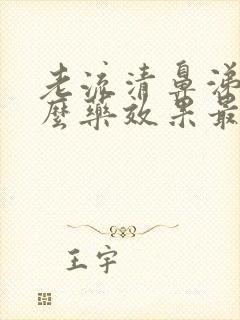 老流清鼻涕
麼藥效果最
王宇